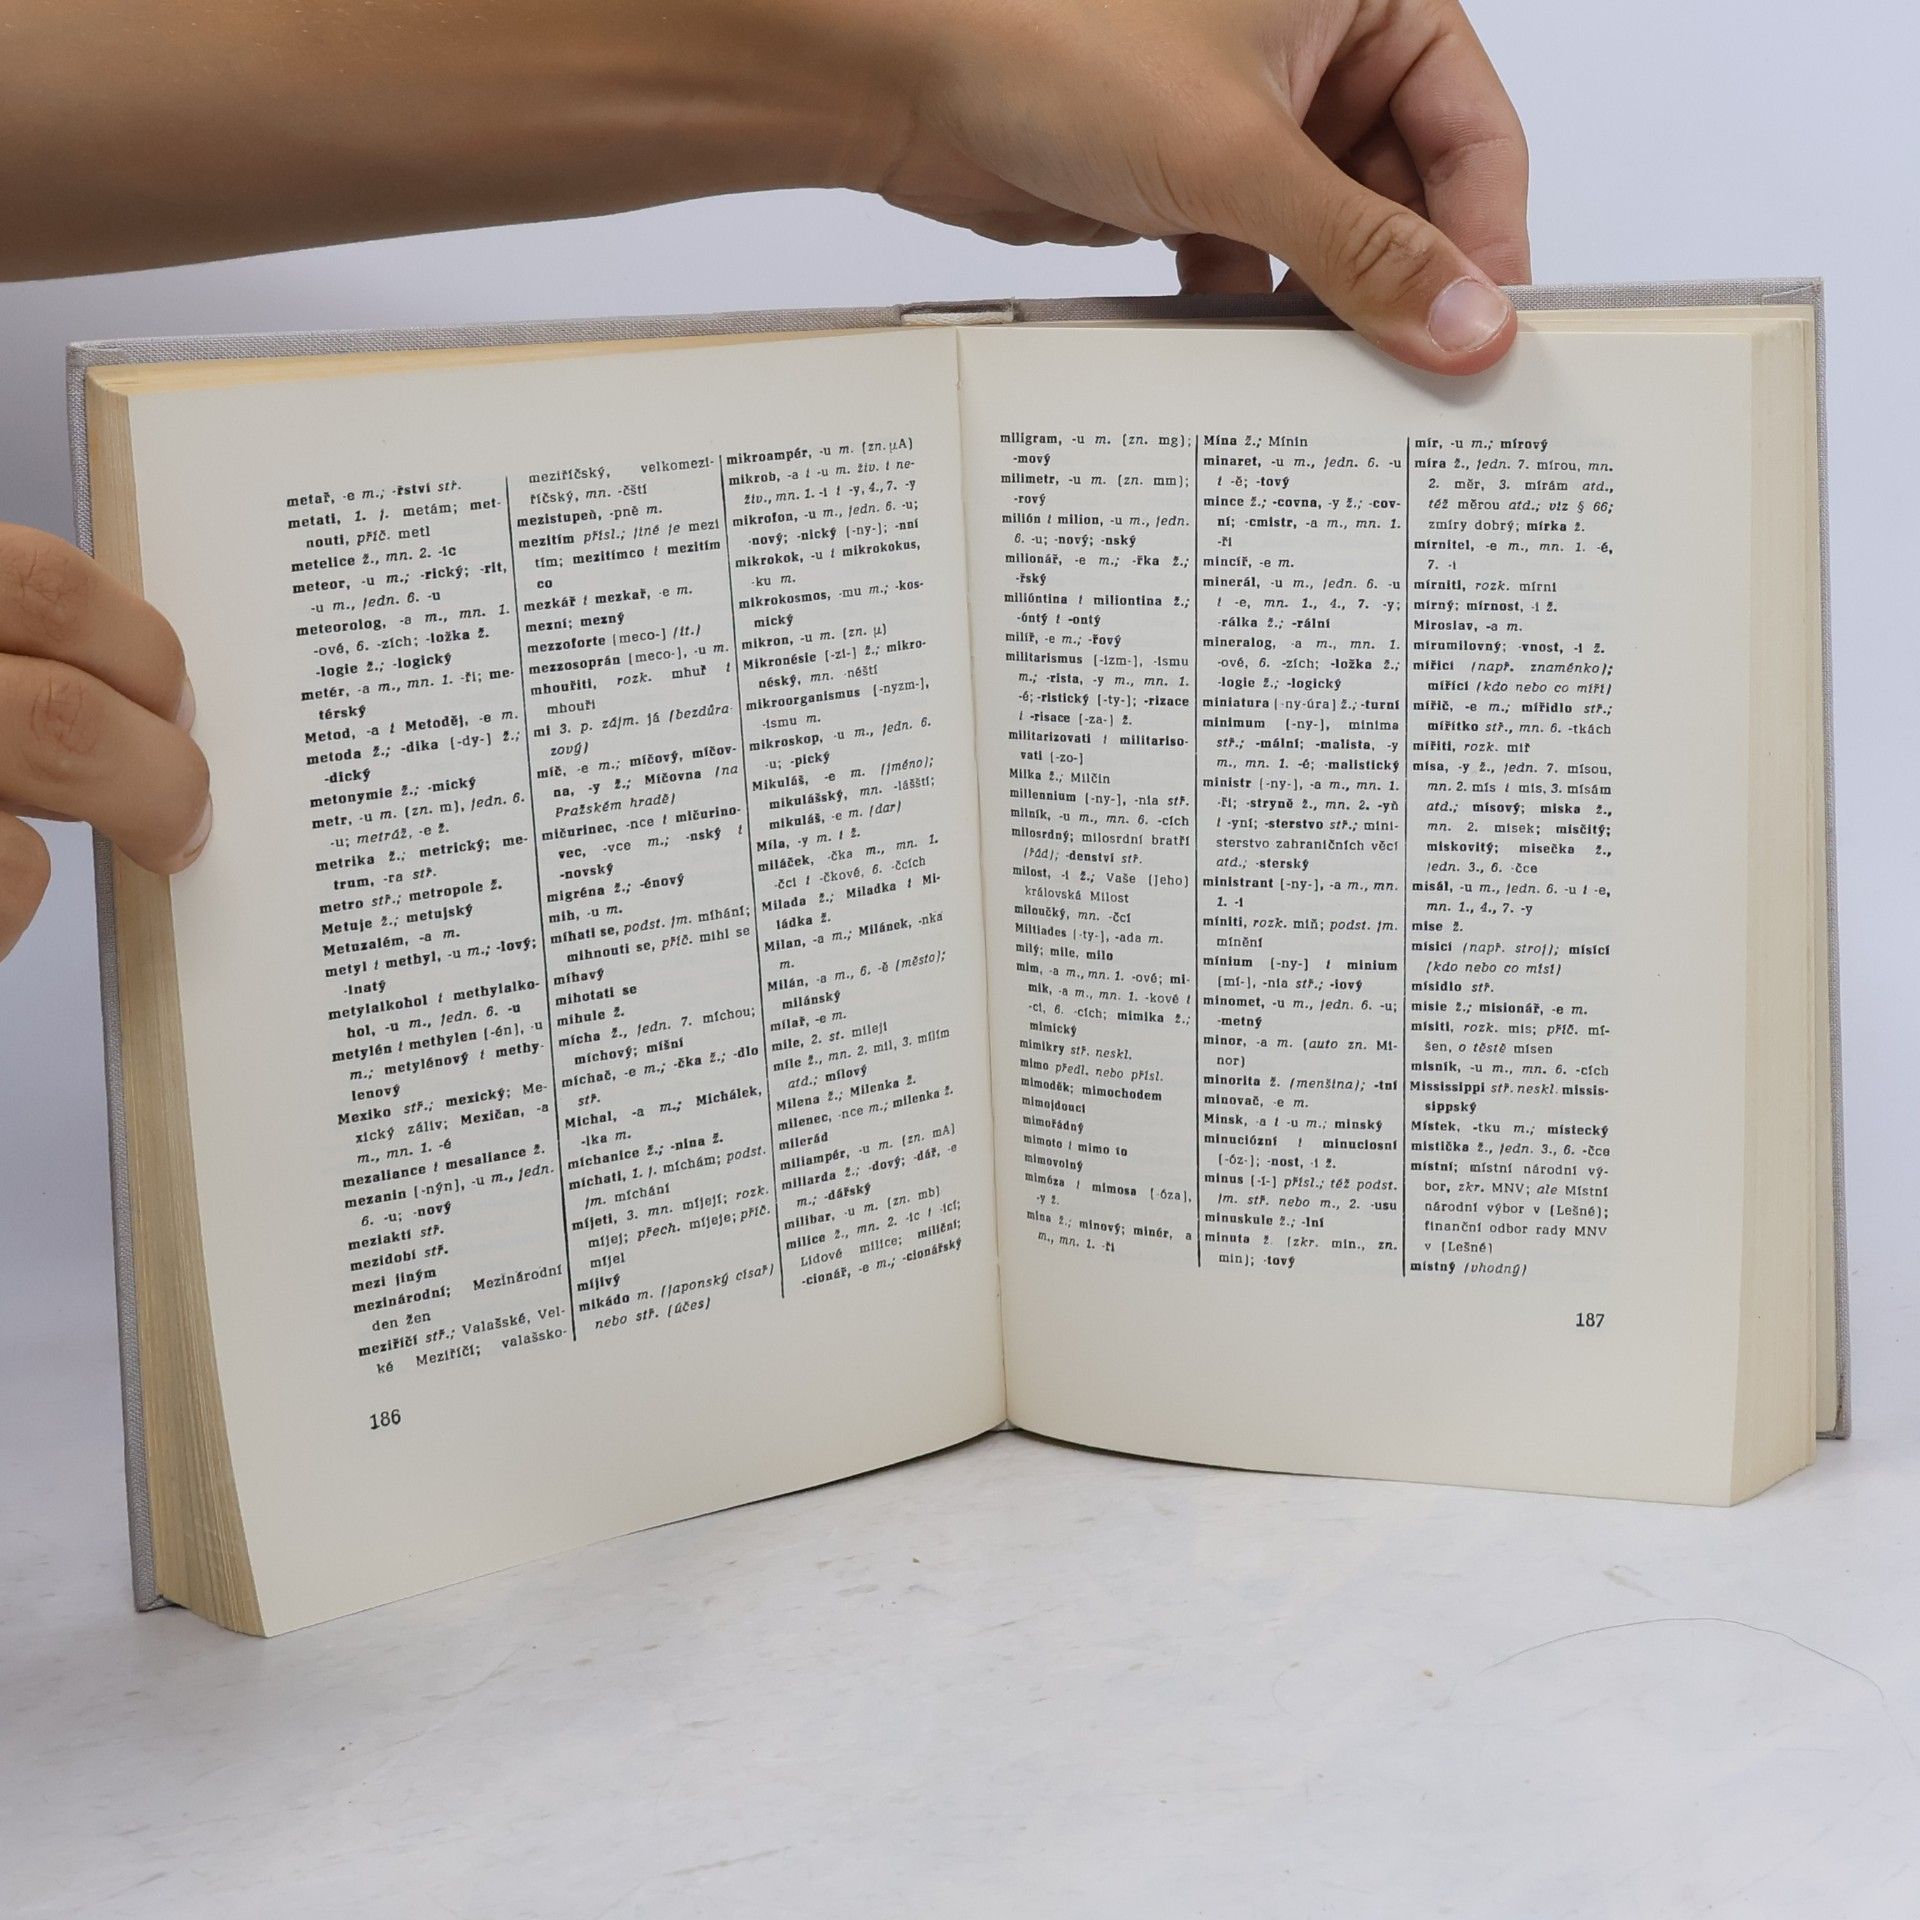 metař, -e m.; -řství stř.
metati, 1. j. metám; met-
nouti, příč. metl
metelice ž., mn. 2. -ic
meteor, -u m.; -rický; -rit,
-u m., jedn. 6. -u
meteorolog, -a m., mn. 1.
-ové, 6. -zích; -ložka ž.
-logie ž.; -logický
metér, -a m., mn. 1. -ři; me-
térský
Metod, -a i Metoděj, -e m.
metoda ž.; -dika [-dy-] ž.;
-dický
metonymie ž.; -mický
metr, -u m. (zn. m), jedn. 6.
-u; metráž, -e ž.
metrika ž.; metrický; me-
trum, -ra stř.
metro stř.; metropole ž.
Metuje ž.; metujský
Metuzalém, -a m.
metyl i methyl, -u m.; -lový;
-lnatý
metylalkohol i methylalko-
hol, -u m., jedn. 6. -u
metylén i methylen [-én], -u
m.; metylénový i methy-
lenový
Mexiko stř.; mexický; Me-
xický záliv; Mexičan, -a
m., mn. 1. -é
mezaliance i mesaliance ž.
mezanin [-nýn], -u m., jedn.
6. -u; -nový
meziaktí stř.
mezidobí stř.
mezi jiným
mezinárodní; Mezinárodní
den žen
meziříčí stř.; Valašské, Vel-
ké Meziříčí; valašsko-
186
meziříčský, velkomezi-
říčský, mn. -čští
mezistupeň, -pně m.
mezitím přísl.; jiné je mezi
tím; mezitímco i mezitím
co
mezkář i mezkař, -e m.
mezní; mezný
mezzoforte [meco-] (it.)
mezzosoprán [meco-], -u m.
mhouřiti, rozk. mhuř i
mhouři
mi 3. p. zájm. já (bezdůra-
zový)
míč, -e m.; míčový, míčov-
na, -y ž.; Míčovna (na
Pražském hradě)
mičurinec, -nce i mičurino-
vec, -vce m.; -nský i
-novský
migréna ž.; -énový
mih, -u m.
míhati se, podst. jm. míhání;
mihnouti se, příč. mihl se
míhavý
mihotati se
mihule ž.
mícha ž., jedn. 7. míchou;
míchový; míšní
míchač, -e m.; -čka ž.; -dlo
stř.
Michal, -a m.; Michálek,
-lka m.
míchanice ž.; -nina ž.
míchati, 1. j. míchám; podst.
jm. míchání
míjeti, 3. mn. míjejí; rozk.
míjej; přech. míjeje; příč.
míjel
míjivý
mikádo m. (japonský císař)
nebo stř. (účes)
mikroampér, -u m. (zn. μA)
mikrob, -a i -u m. živ. i ne-
živ., mn. 1. -i i -y, 4., 7. -y
mikrofon, -u m., jedn. 6. -u;
-nový; -nický [-ny-]; -nní
mikrokok, -u i mikrokokus,
-ku m.
mikrokosmos, -mu m.; -kos-
mický
mikron, -u m. (zn. μ)
Mikronésie [-zi-] ž.; mikro-
néský, mn. -néští
mikroorganismus [-nyzm-],
-ismu m.
mikroskop, -u m., jedn. 6.
-u; -pický
Mikuláš, -e m. (jméno);
mikulášský, mn. -lášští;
mikuláš, -e m. (dar)
Míla, -y m. i ž.
miláček, -čka m., mn. 1.
-čci i -čkové, 6. -čcích
Milada ž.; Miladka i Mi-
ládka ž.
Milan, -a m.; Milánek, -nka
m.
Milán, -a m., 6. -ě (město);
milánský
milář, -e m.
mile, 2. st. mileji
míle ž., mn. 2. mil, 3. mílím
atd.; mílový
Milena ž.; Milenka ž.
milenec, -nce m.; milenka ž.
milerád
miliampér, -u m. (zn. mA)
miliarda ž.; -dový; -dář, -e
m.; -dářský
milibar, -u m. (zn. mb)
milice ž., mn. 2. -ic i -icí;
Lidové milice; miliční;
-cionář, -e m.; -cionářský
miligram, -u m. (zn. mg);
-mový
milimetr, -u m. (zn. mm);
-rový
milión i milion, -u m., jedn.
6. -u; -nový; -nský
milionář, -e m.; -řka ž.;
-řský
milióntina i miliontina ž.;
-óntý i -ontý
milíř, -e m.; -řový
militarismus [-izm-], -ismu
m.; -rista, -y m., mn. 1.
-é; -ristický [-ty-]; -rizace
i -risace [-za-] ž.
militarizovati i militariso-
vati [-zo-]
Milka ž.; Milčin
millennium [-ny-], -nia stř.
milník, -u m., mn. 6. -cích
milosrdný; milosrdní bratří
(řád); -denství stř.
milost, -i ž.; Vaše (Jeho)
královská Milost
miloučký, mn. -čcí
Miltiades [-ty-], -ada m.
milý; mile, milo
mim, -a m., mn. 1. -ové; mi-
mik, -a m., mn. 1. -kové i
-ci, 6. -cích; mimika ž.;
mimický
mimikry stř. neskl.
mimo předl. nebo přísl.
mimoděk; mimochodem
mimojdoucí
mimořádný
mimoto i mimo to
mimovolný
mimóza i mimosa [-óza],
-y ž.
mina ž.; minový; minér, -a
m., mn. 1. -ři
Mína ž.; Mínin
minaret, -u m., jedn. 6. -u
i -ě; -tový
mince ž.; -covna, -y ž.; -cov-
ní; -cmistr, -a m., mn. 1.
-ři
mincíř, -e m.
minerál, -u m., jedn. 6. -u
i -e, mn. 1., 4., 7. -y;
-rálka ž.; -rální
mineralog, -a m., mn. 1.
-ové, 6. -zích; -ložka ž.;
-logie ž.; -logický
miniatura [-ny-úra] ž.; -turní
minimum [-ny-], minima
stř.; -mální; -malista, -y
m., mn. 1. -é; -malistický
ministr [-ny-], -a m., mn. 1.
-ři; -stryně ž., mn. 2. -yň
i -yní; -sterstvo stř.; mini-
sterstvo zahraničních věcí
atd.; -sterský
ministrant [-ny-], -a m., mn.
1. -i
míniti, rozk. miň; podst. jm.
mínění
mínium [-ny-] i minium
[mí-], -nia stř.; -iový
minomet, -u m., jedn. 6. -u;
-metný
minor, -a m. (auto zn. Mi-
nor)
minorita ž. (menšina); -tní
minovač, -e m.
Minsk, -a i -u m.; minský
minuciózní i minuciosní
[-óz-]; -nost, -i ž.
minus [-í-] přísl.; též podst.
jm. stř. nebo m., 2. -usu
minuskule ž.; -lní
minuta ž. (zkr. min., zn.
min); -tový
mír, -u m.; mírový
míra ž., jedn. 7. mírou, mn.
2. měr, 3. mírám atd.,
též měrou atd.; viz § 66;
zmíry dobrý; mírka ž.
mírnitel, -e m., mn. 1. -é,
7. -i
mírniti, rozk. mírni
mírný; mírnost, -i ž.
Miroslav, -a m.
mírumilovný; -vnost, -i ž.
mířicí (např. znaménko);
mířící (kdo nebo co míří)
mířič, -e m.; mířidlo stř.;
měřítko stř., mn. 6. -tkách
mířiti, rozk. miř
mísa, -y ž., jedn. 7. mísou,
mn. 2. mis i mís, 3. mísám
atd.; mísový; miska ž.,
mn. 2. misek; misčitý;
miskovitý; misečka ž.,
jedn. 3., 6. -čce
misál, -u m., jedn. 6. -u i -e,
mn. 1., 4., 7. -y
mise ž.
mísicí (např. stroj); mísící
(kdo nebo co mísí)
mísidlo stř.
misie ž.; misionář, -e m.
mísiti, rozk. mis; příč. mí-
šen, o těstě mísen
mísník, -u m., mn. 6. -cích
Mississippi stř. neskl. missis-
sippský
Místek, -tku m.; místecký
mistička ž., jedn. 3., 6. -čce
místní; místní národní vý-
bor, zkr. MNV; ale Místní
národní výbor v (Lešné);
finanční odbor rady MNV
v (Lešné)
místný (vhodný)
187